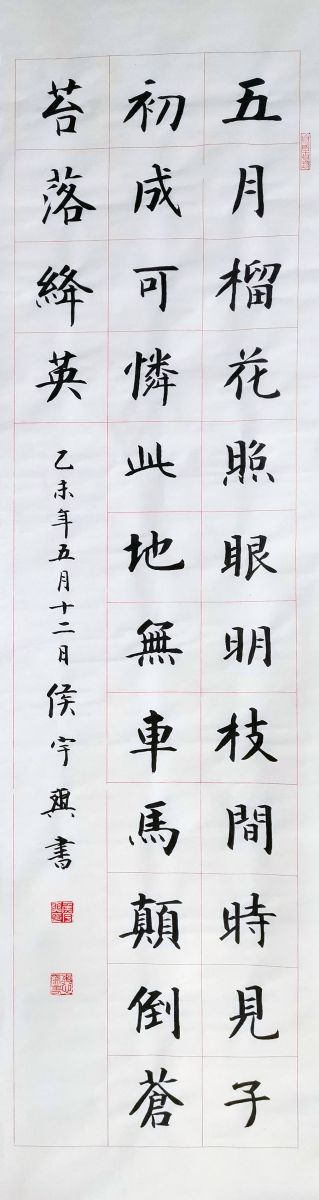 五月榴花照眼明枝間時見子
初成可憐此地無車馬顛倒蒼
苔落絳英
乙未年五月十二日侯宇興書